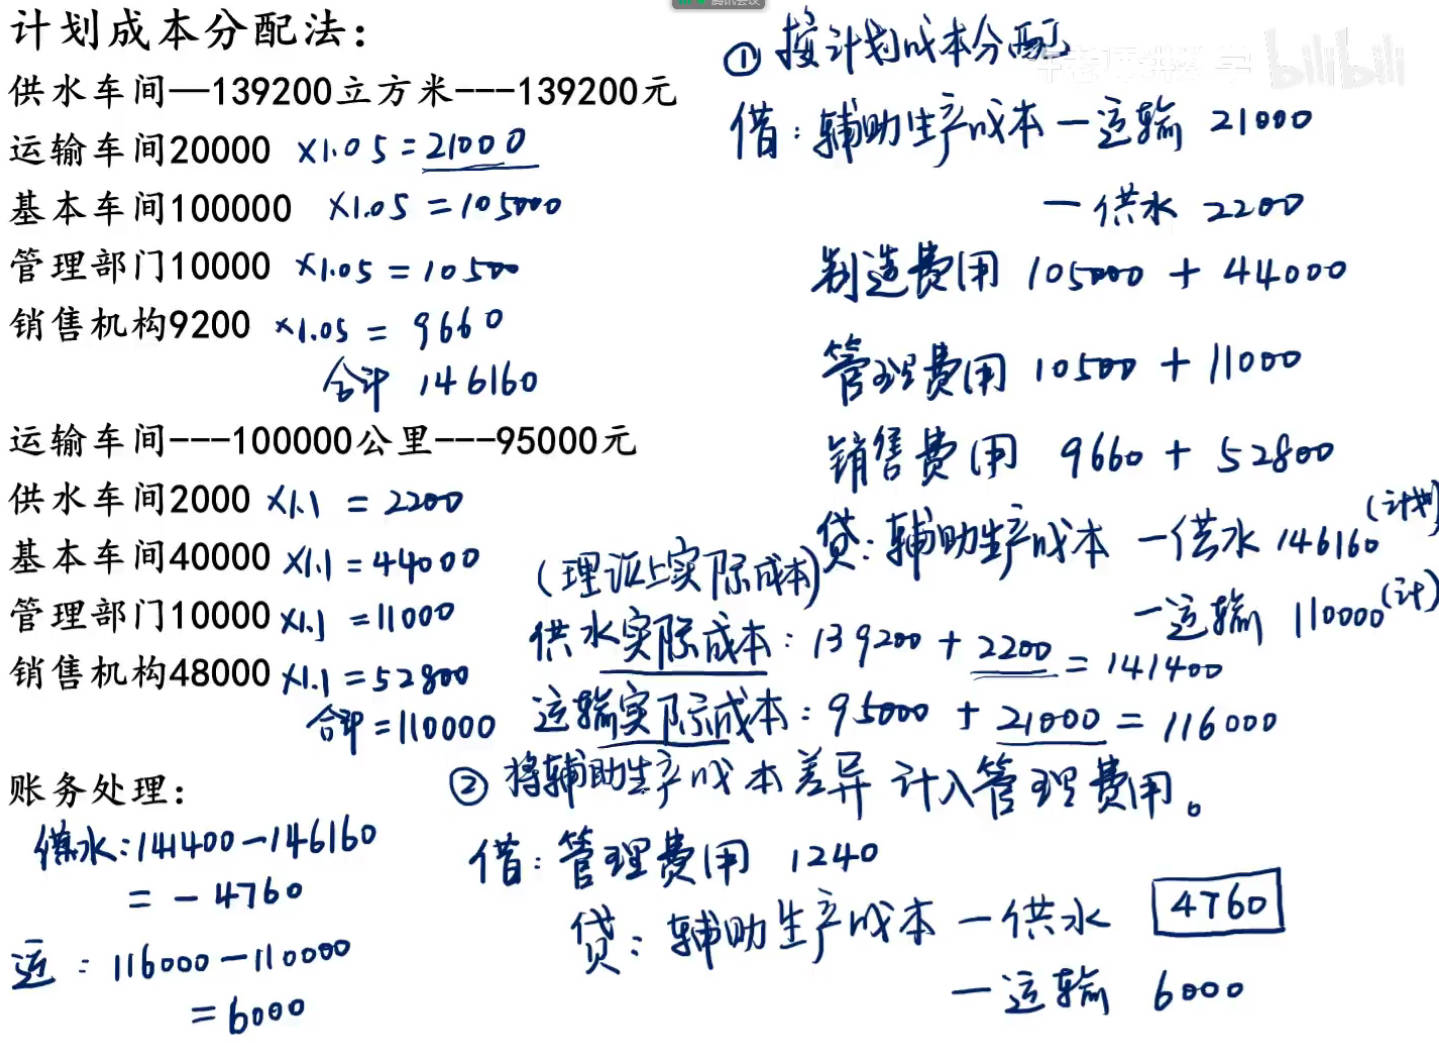 腾讯会议
计划成本分配法：
供水车间—139200立方米---139200元
运输车间20000 ×1.05=21000
基本车间100000 ×1.05=105000
管理部门10000 ×1.05=10500
销售机构9200 ×1.05=9660
合计 146160
运输车间---100000公里---95000元
供水车间2000 ×1.1=2200
基本车间40000 ×1.1=44000
管理部门10000 ×1.1=11000
销售机构48000 ×1.1=52800
合计=110000
账务处理：
供水：141400-146160
=-4760
运：116000-110000
=6000
① 按计划成本分配
bilibili
借：辅助生产成本—运输 21000
—供水 2200
制造费用 105000+44000
管理费用 10500+11000
销售费用 9660+52800
贷：辅助生产成本—供水 146160(计划)
—运输 110000(计)
(理论上实际成本)
供水实际成本：139200+2200=141400
运输实际成本：95000+21000=116000
② 将辅助生产成本差异计入管理费用。
借：管理费用 1240
贷：辅助生产成本—供水 4760
—运输 6000